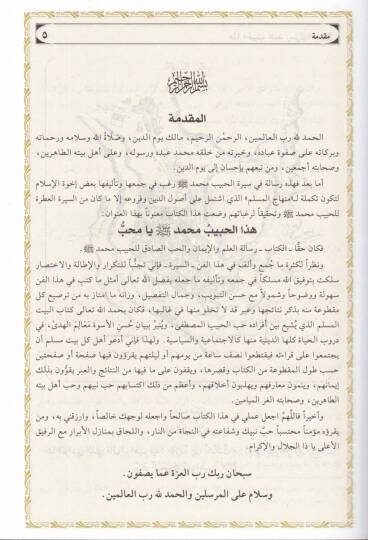 مقدمة
٥
بسم الله الرحمن الرحيم
المقدمة
الحمد لله رب العالمين، الرحمٰن الرحيم، مالك يوم الدين، وصلاة الله وسلامه ورحماته
وبركاته على صفوة عباده، وخيرته من خلقه محمد عبده ورسوله، وعلى أهل بيته الطاهرين،
وصحابته أجمعين، ومن تبعهم بإحسان إلى يوم الدين.
أما بعد فهذه رسالة في سيرة الحبيب محمد ﷺ رغب في جمعها وتأليفها بعض إخوة الإسلام
لتكون تكملة لـ«منهاج المسلم» الذي اشتمل على أصول الدين وفروعه إلا ما كان من السيرة العطرة
للحبيب محمد ﷺ وتحقيقاً لرغباتهم وضعت هذا الكتاب معنوناً بهذا العنوان:
هذا الحبيبُ محمد ﷺ يا محبُّ
فكان حقًّا ـ الكتاب ـ رسالة العلم والإيمان والحب الصادق للحبيب محمد ﷺ.
ونظراً لكثرة ما جُمع وأُلف في هذا الفن ـ السيرة ـ فإني تجنُّباً للتكرار والإطالة والاختصار
سلكت بتوفيق الله مسلكاً في جمعه وتأليفه ما جعله بفضل الله تعالى أمثل ما كتب في هذا الفن
سهولة ووضوحاً وشمولاً مع حسن التبويب، وجمال التفصيل، وزانه ما امتاز به من ترصيع كل
مقطوعة منه بذكر نتائجها وعبر قد لا تخلو منها في غالبها، فكان بحمد الله تعالى كتاب البيت
المسلم الذي يُشيع بين أفراده حب الحبيب المصطفى، ويُنير ببيان حُسن الأسوة مَعَالِمَ الهدىٰ، في
دروب الحياة كلها الدينية منها كالاجتماعية والسياسية. ولهذا فإني أدعو أهل كل بيت مسلم أن
يجتمعوا على قراءته فيقتطعوا نصف ساعة من يومهم أو ليلتهم يقرؤون فيها صفحة أو صفحتين
حسب طول المقطوعة من الكتاب وقصرها، ويقفون على ما فيها من النتائج والعبر يقوُّون بذلك
إيمانهم، وينمون معارفهم ويهذبون أخلاقهم، وأعظم من ذلك اكتسابهم حب نبيهم وحب أهل بيته
الطاهرين، وصحابته الغر الميامين.
وأخيراً فاللَّهمَّ اجعل عملي في هذا الكتاب صالحاً واجعله لوجهك خالصاً، وارزقني به، ومن
يقرؤه مؤمناً محتسباً حبَّ نبيك وشفاعته في النجاة من النار، واللحاق بمنازل الأبرار مع الرفيق
الأعلى يا ذا الجلال والإكرام.
سبحان ربك رب العزة عما يصفون.
وسلام على المرسلين والحمد لله رب العالمين.